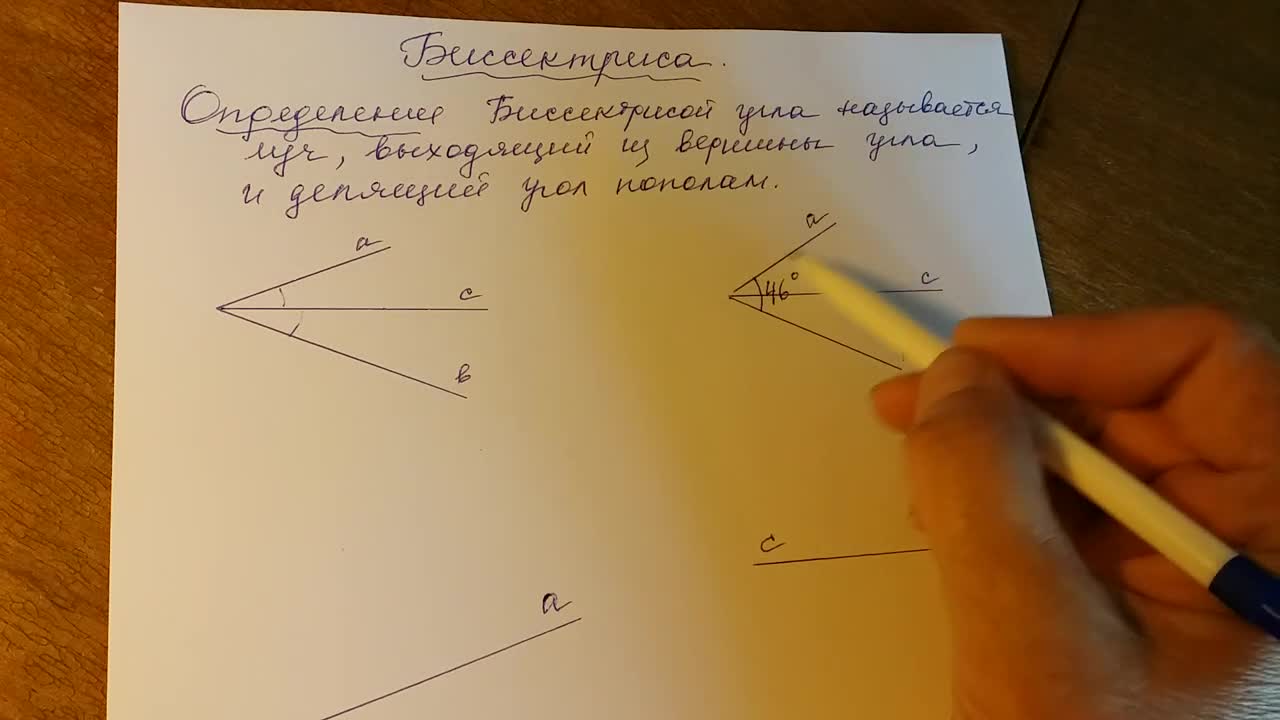 Биссектриса.
Определение Биссектрисой угла называется
луч, выходящий из вершины угла,
и делящий угол пополам.
a
c
в
a
46°
c
c
a